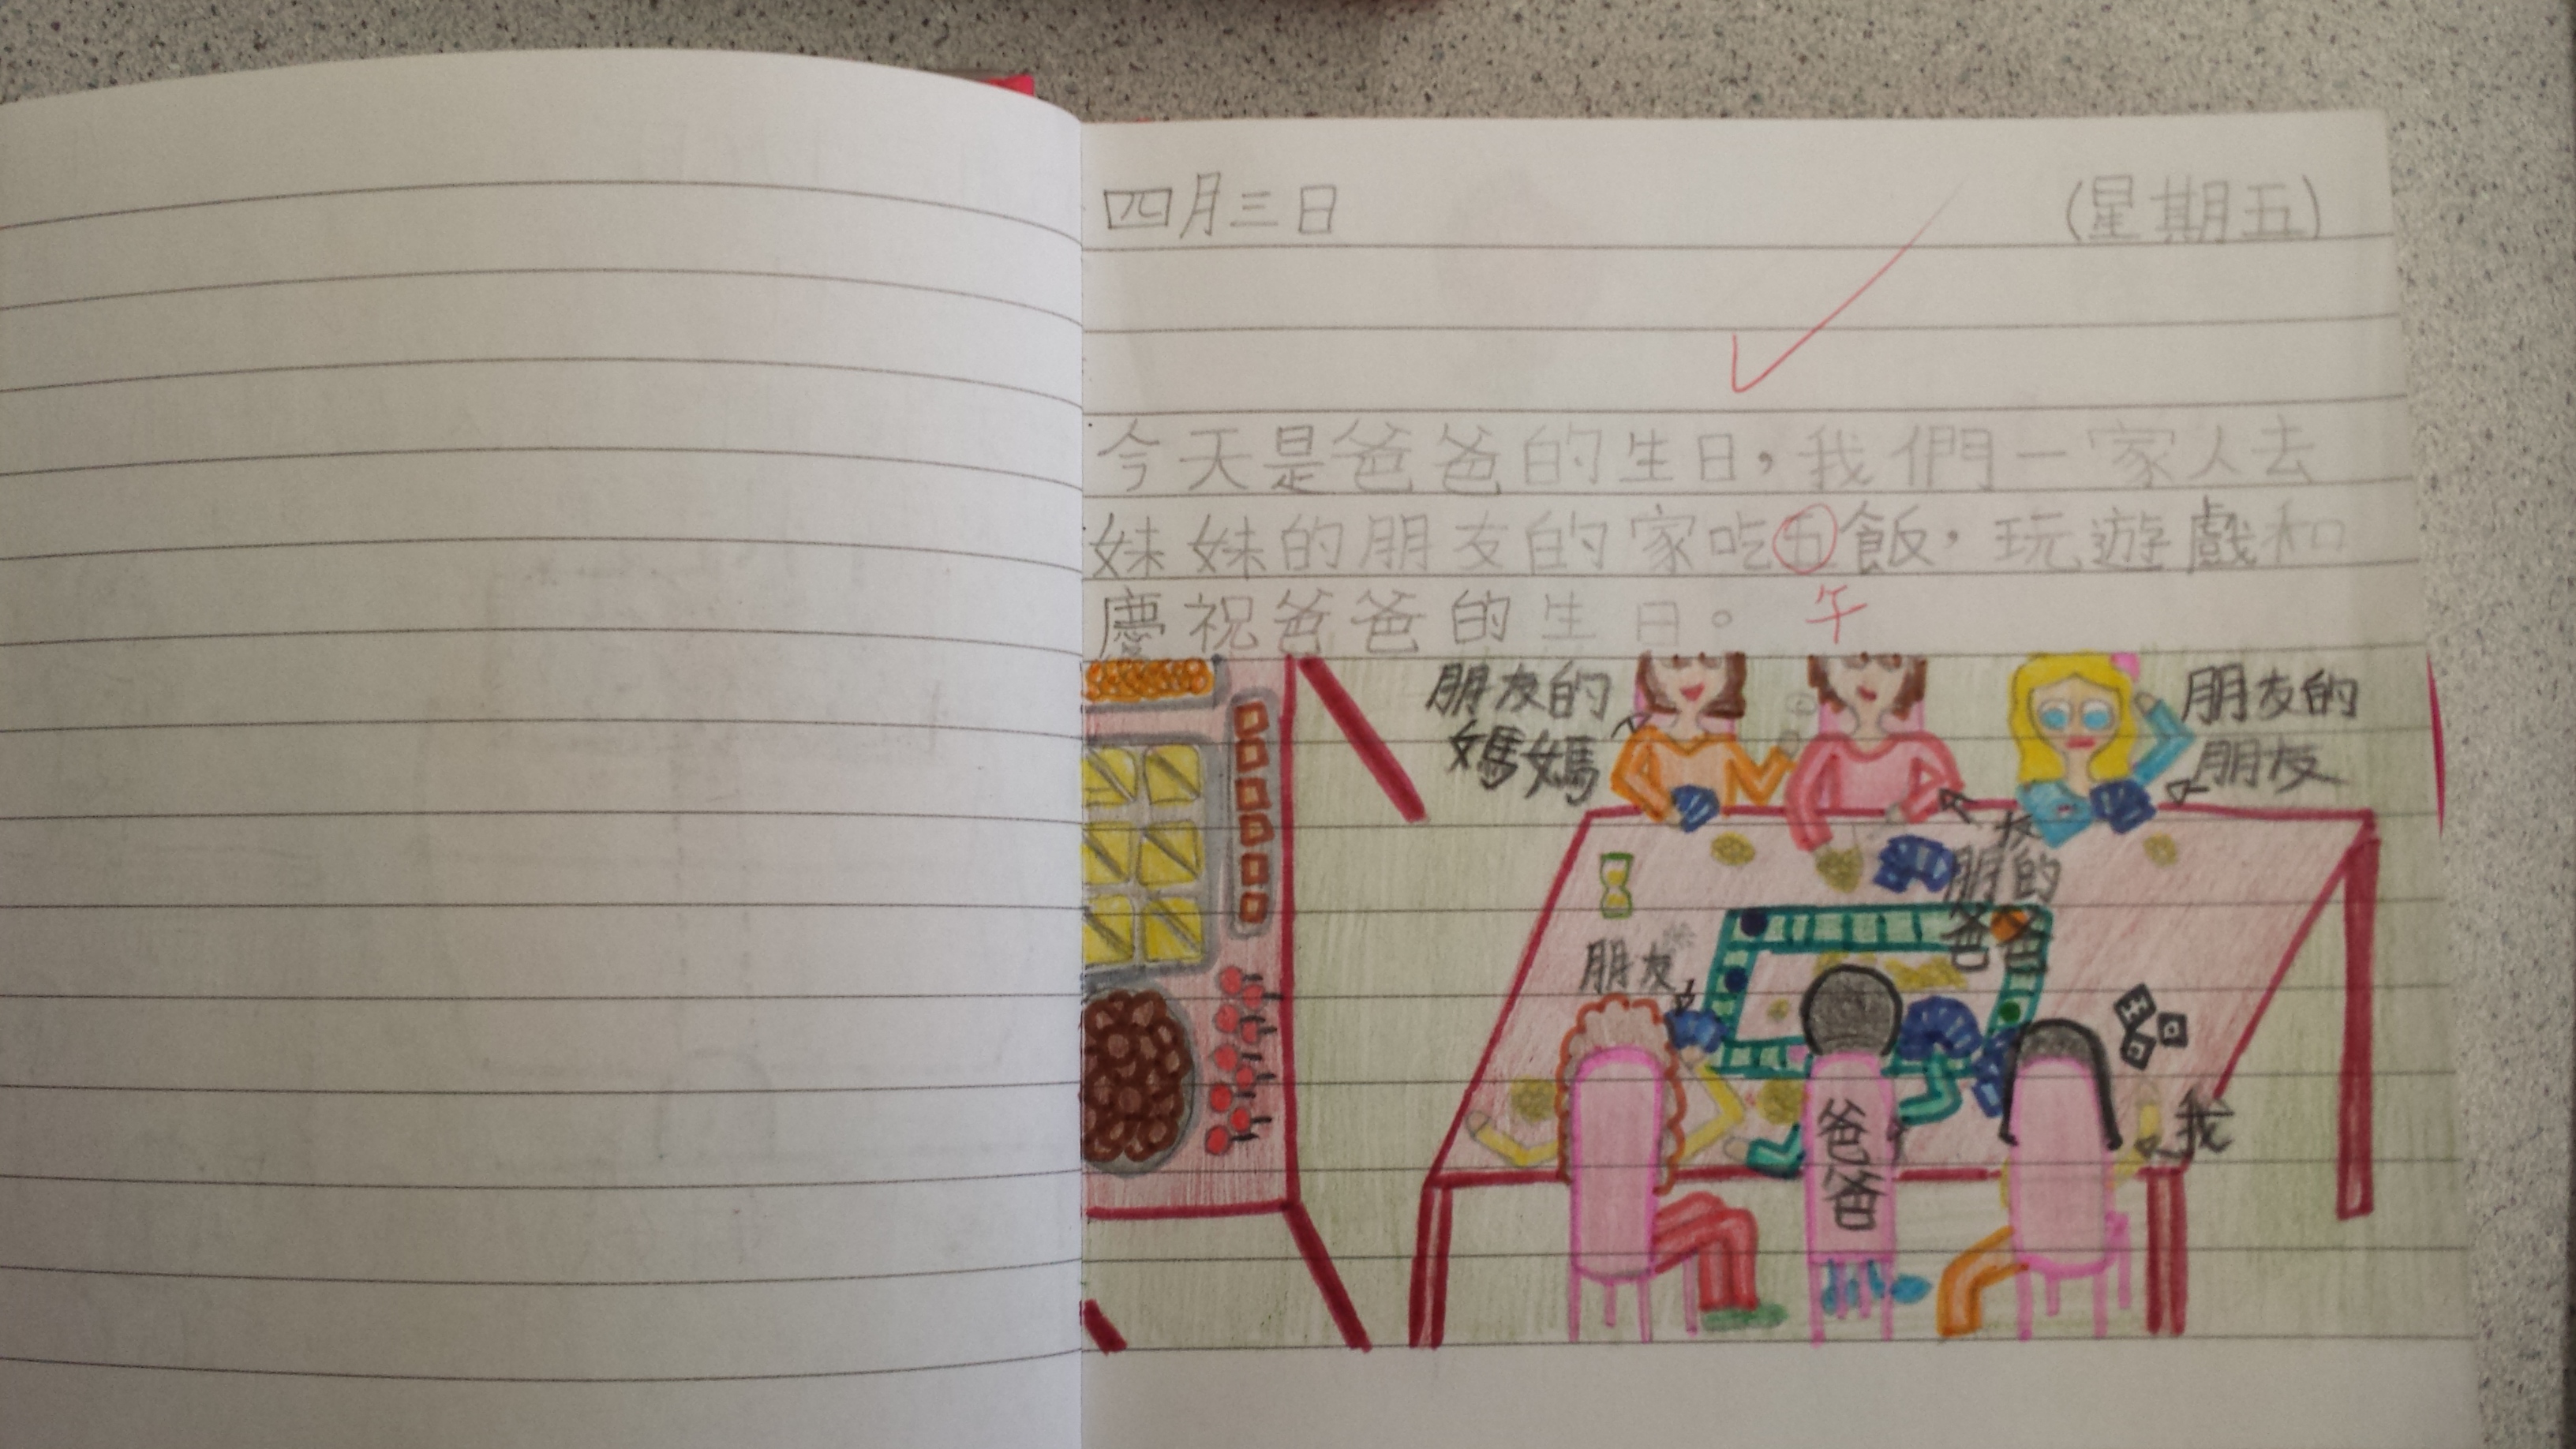 四月三日 (星期五)
今天是爸爸的生日，我們一家人去
妹妹的朋友的家吃五飯，玩遊戲和
慶祝爸爸的生日。 午
朋友的
媽媽
朋友的
朋友
朋友的
爸爸
朋友
爸爸
我